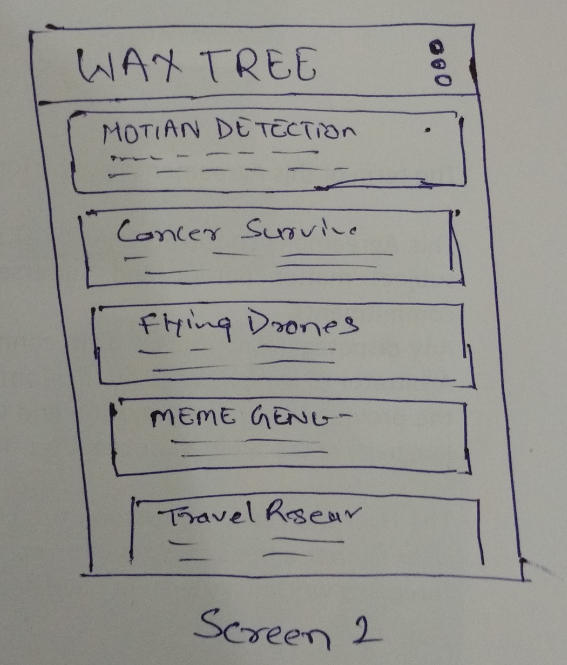 WAX TREE
MOTIAN DETECTION
Cancer Survive
Flying Drones
MEME GENG-
Travel Resear
Screen 2